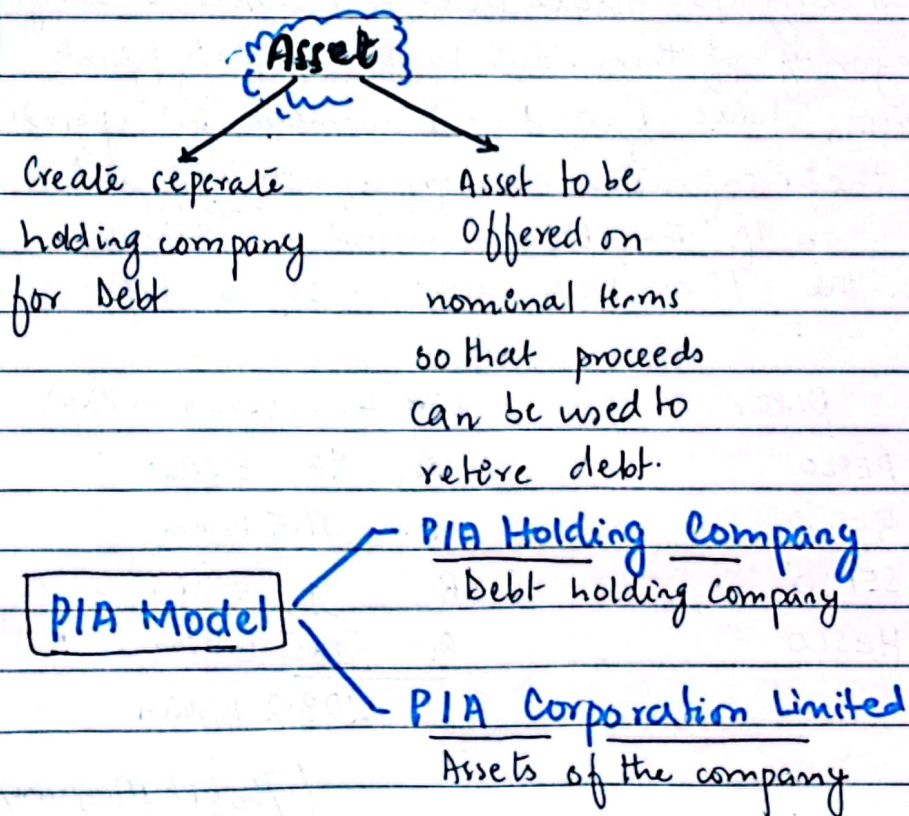 Asset
Create seperate
holding company
for Debt
Asset to be
Offered on
nominal terms
so that proceeds
can be used to
retire debt.
PIA Model
PIA Holding Company
Debt holding company
PIA Corporation Limited
Assets of the company